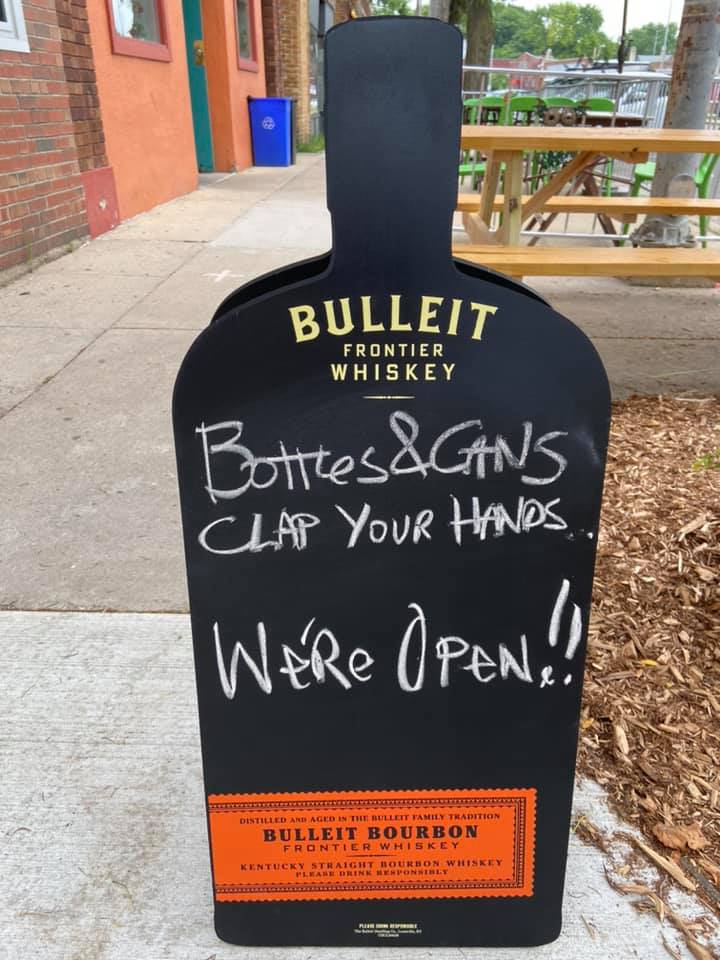 BULLEIT
FRONTIER
WHISKEY
Bottles & Cans
CLAP YOUR HANDS
WE'Re OPEN!!
DISTILLED AND AGED IN THE BULLEIT FAMILY TRADITION
BULLEIT BOURBON
FRONTIER WHISKEY
KENTUCKY STRAIGHT BOURBON WHISKEY
PLEASE DRINK RESPONSIBLY
PLEASE DRINK RESPONSIBLY